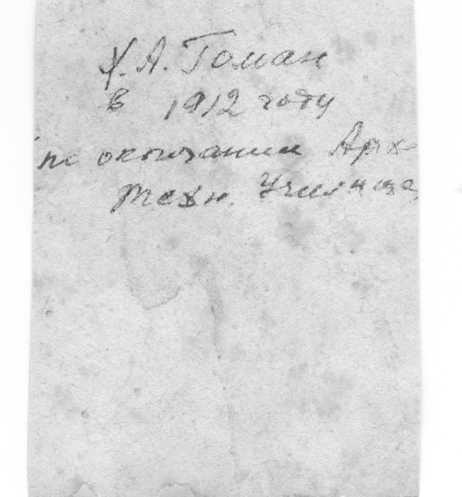 Х. А. Гоман
в 1912 году
по окончании Арх-
техн. Училища